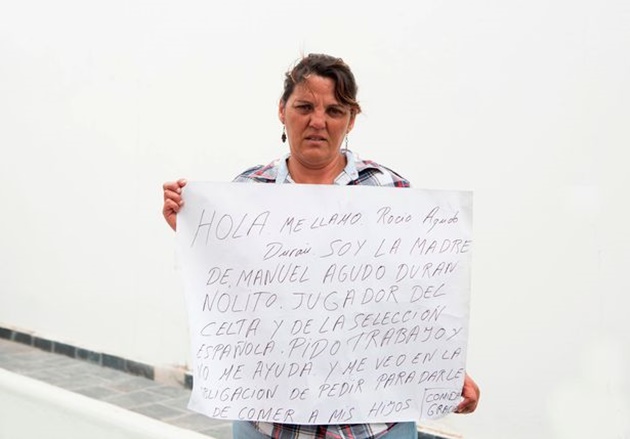 HOLA. ME LLAMO. Rocio Agudo
Duran. SOY LA MADRE
DE. MANUEL AGUDO DURAN
NOLITO. JUGADOR DEL
CELTA Y DE LA SELECCION
ESPAÑOLA. PIDO TRABAJO Y
YO ME AYUDA Y ME VEO EN LA
OBLIGACION DE PEDIR PARA DARLE
DE COMER A MIS HIJOS
COMIDA
GRACIAS